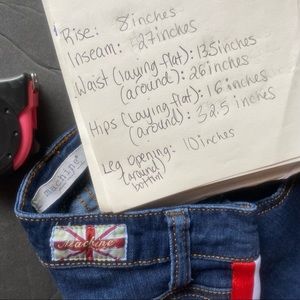 Rise: 8inches
Inseam: 27inches
Waist (laying flat): 13.5inches
(around): 26inches
Hips (laying flat): 16 inches
(around): 32.5 inches
Leg Opening: 10inches
(around
bottom)
machine
Machine